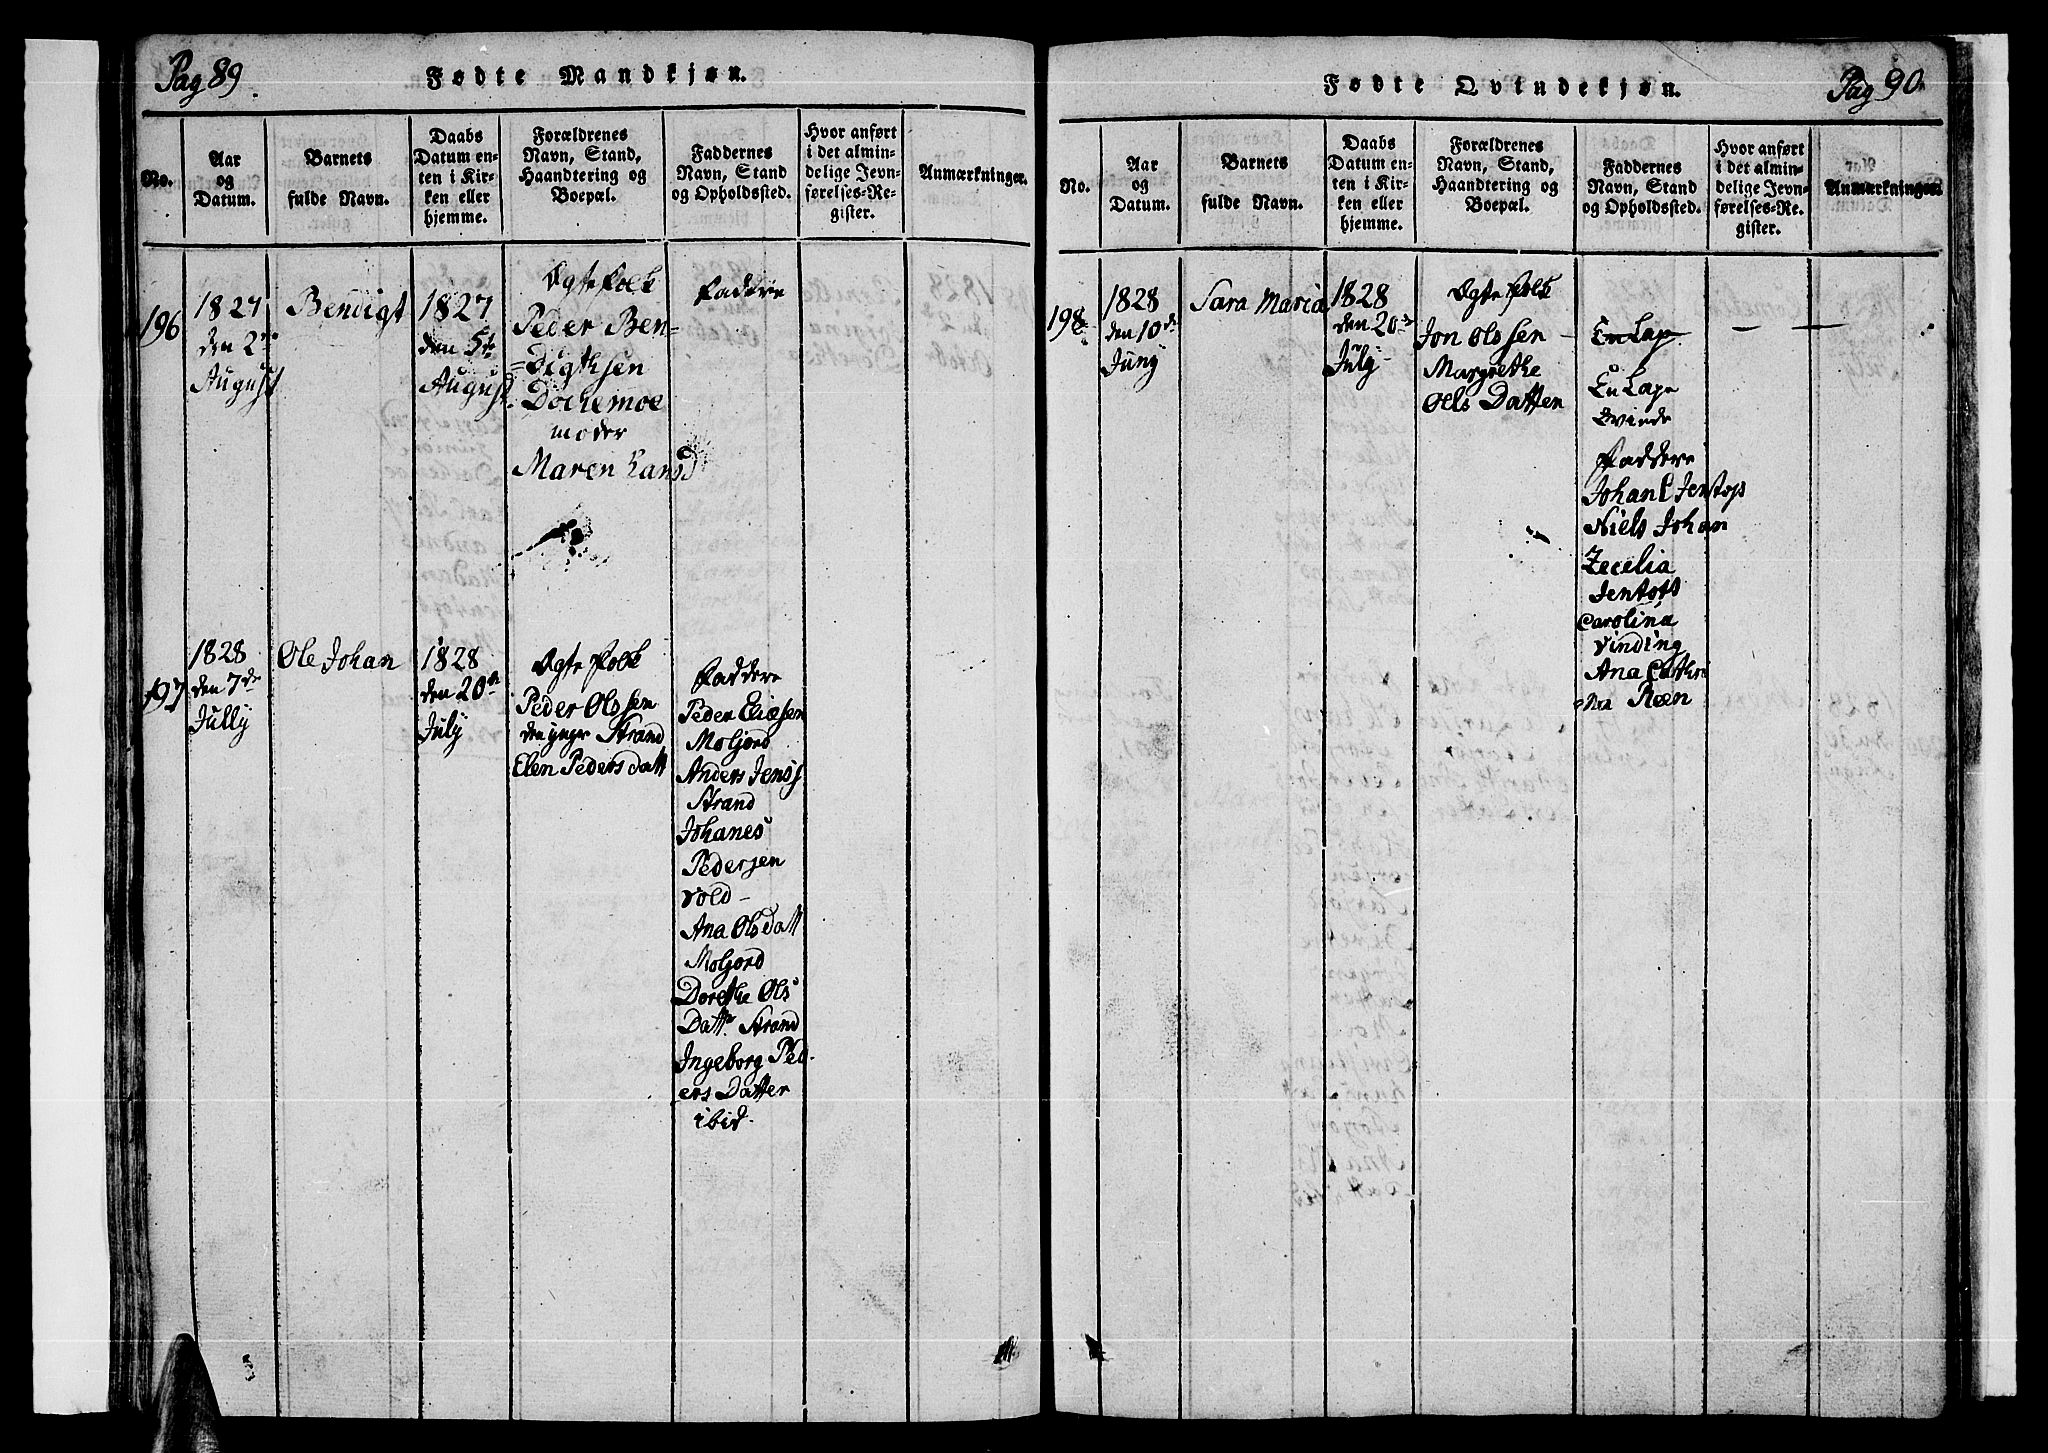 Pag 89
Fødte Mandkjøn.
No.
Aar
og
Datum.
Barnets
fulde Navn.
Daabs
Datum en-
ten i Kir-
ken eller
hjemme.
Forældrenes
Navn, Stand,
Haandtering og
Boepæl.
Faddernes
Navn, Stand
og Opholdssted.
Hvor anført
i det almin-
delige Jevn-
førelses-Re-
gister.
Anmærkninger.
196
1827
den 2de
August
Bendigt
1827
den 5te
August
Ægte Folk
Peder Ben=
=digthsen
moder
Maren Larsd
Faddere
197
1828
den 7de
Jully
Ole Johan
1828
den 20de
July
Ægte Folk
Peder Olssen
den ynger Strand
Elen Peders datt
Faddere
Peder Eliæsen
Moljord
Anders Jens
Strand
Johanes
Pedersen
vold-
Ana Olsdatt
Moljord
Dorethe Ols
Datt. Strand
Ingeborg Ped-
ers Datter
ibid.
Pag 90
Fødte Qvindekjøn.
No.
Aar
og
Datum.
Barnets
fulde Navn.
Daabs
Datum en-
ten i Kir-
ken eller
hjemme.
Forældrenes
Navn, Stand,
Haandtering og
Boepæl.
Faddernes
Navn, Stand
og Opholdssted.
Hvor anført
i det almin-
delige Jevn-
førelses-Re-
gister.
Anmærkninger.
198
1828
den 10de
Juny
Sara Maria
1828
den 20de
July
Ægte Folk
Jon Olssen
Margrethe
Ols Datter
En Lap
En Lape
Qvinde
Faddere
Johan Jentofs
Niels Johan
Zecelia
Jentofs
Carolina
Vinding
Ana Cathri
na Røen